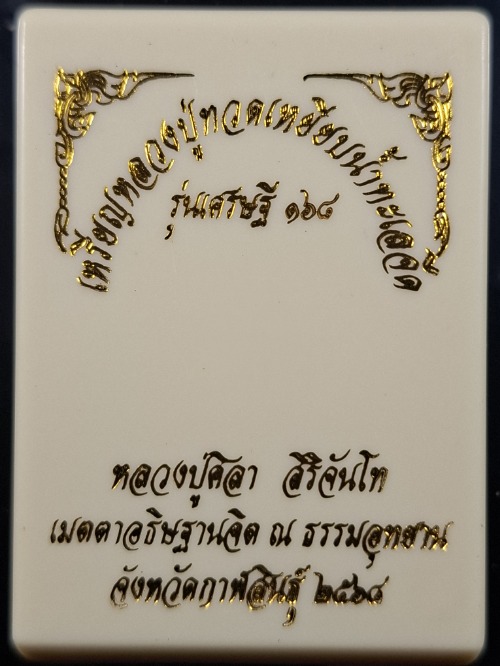 เหรียญหลวงปู่ทวดเหยียบน้ำทะเลจืด
รุ่นเศรษฐี ๑๖๘
หลวงปู่ศิลา สิริจันโท
เมตตาอธิษฐานจิต ณ ธรรมอุทยาน
จังหวัดกาฬสินธุ์ ๒๕๖๘